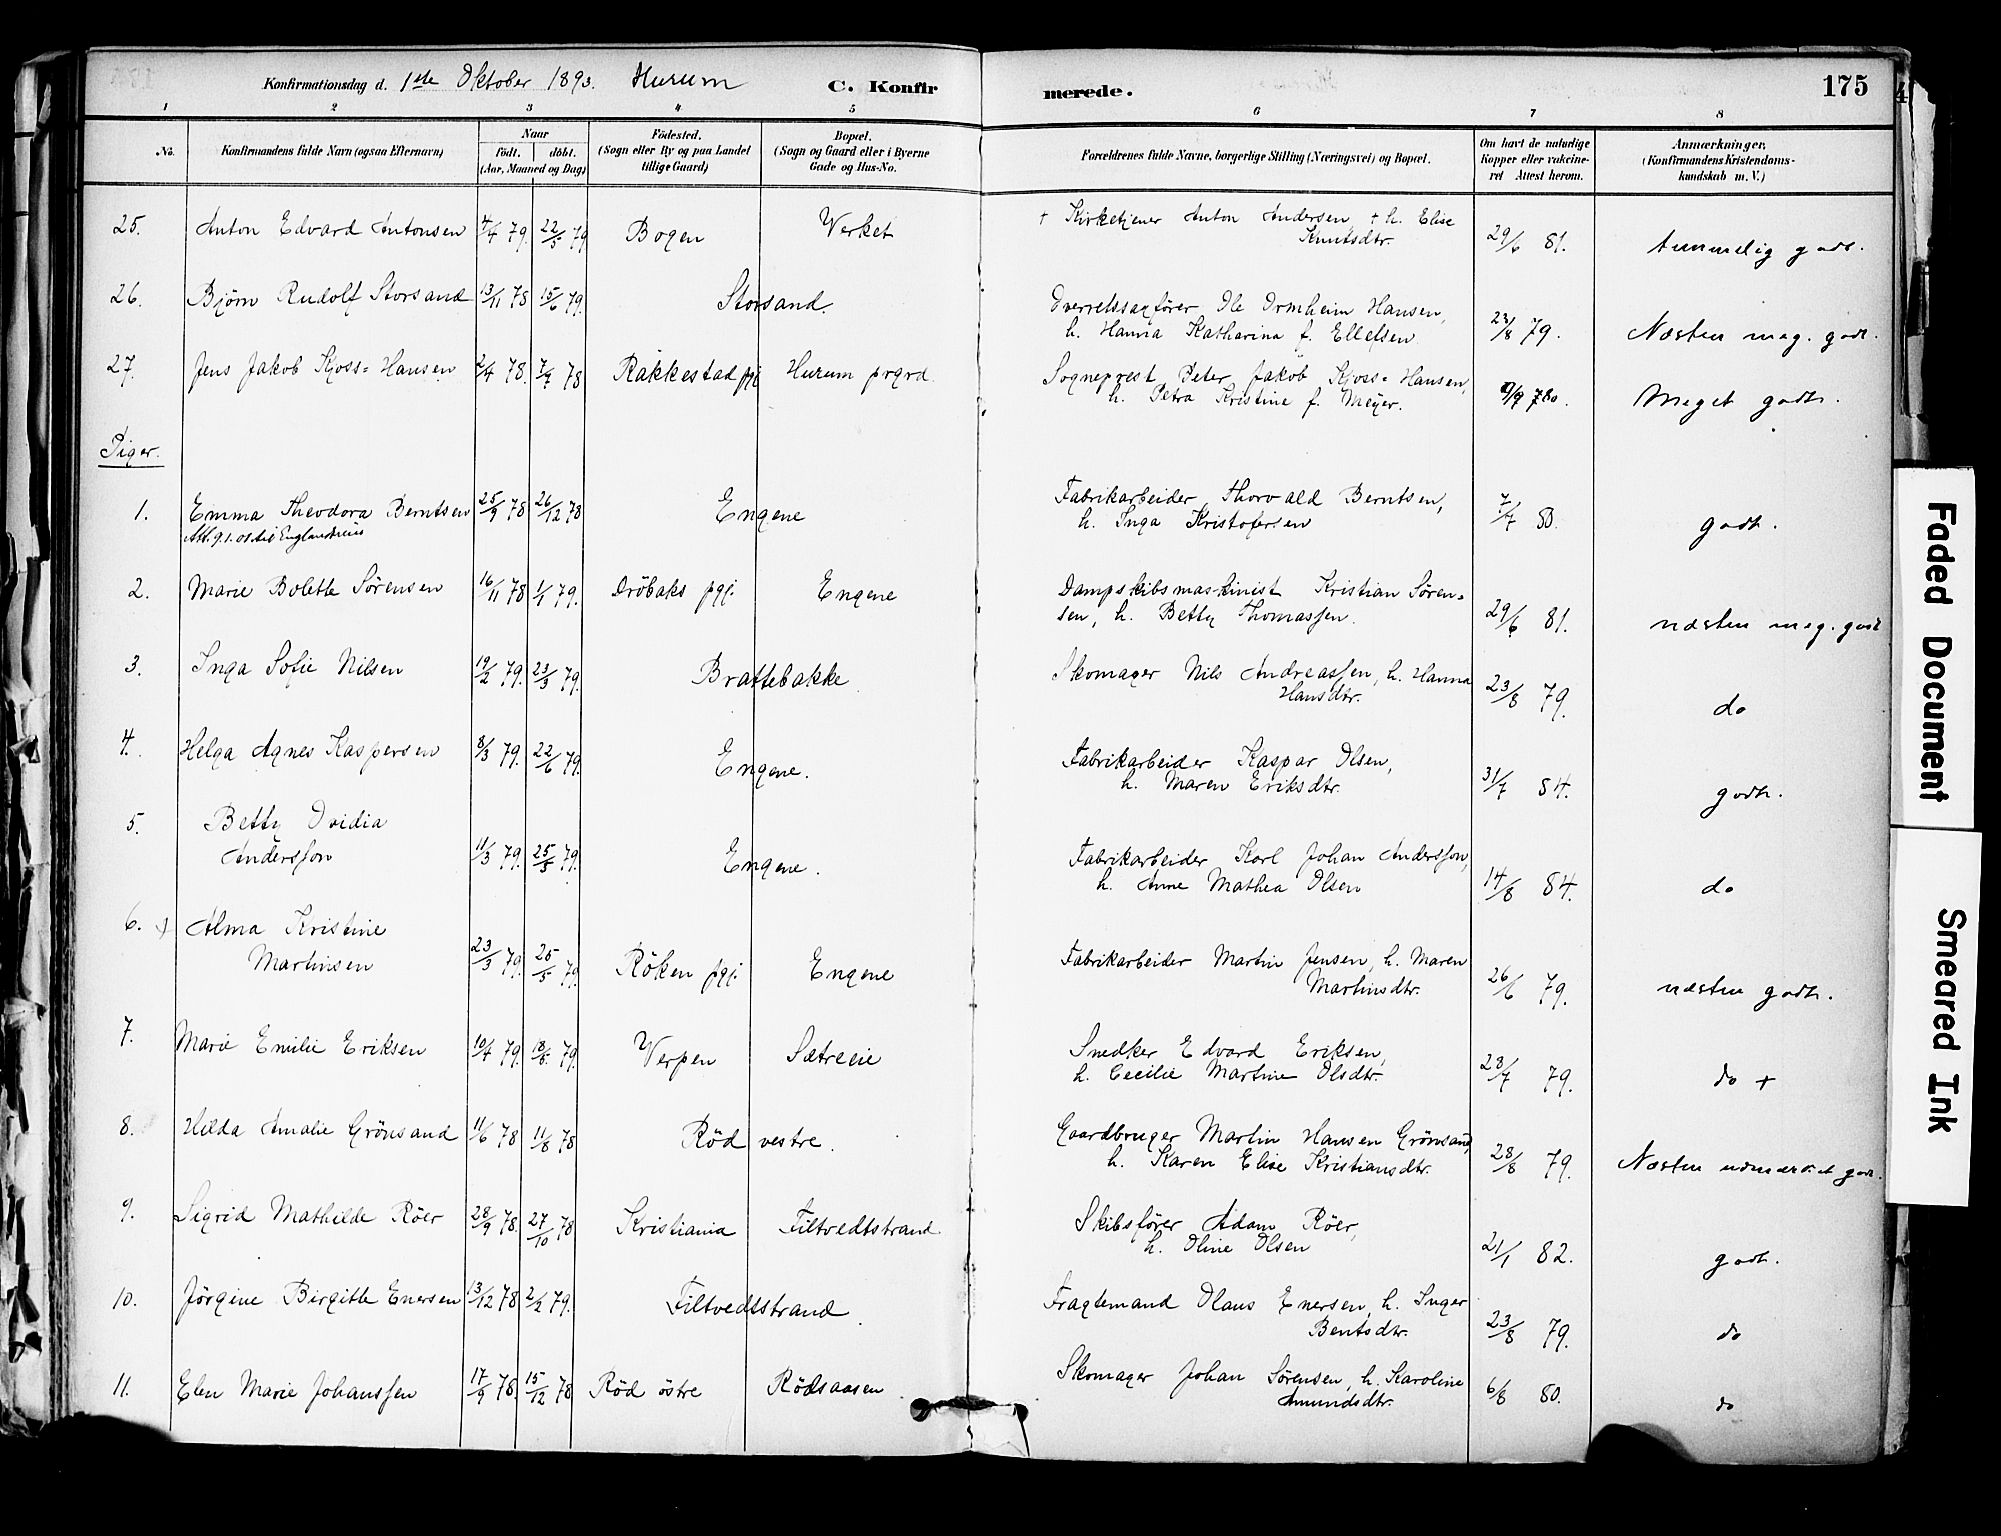 Konfirmationsdag d. 1ste Oktober 1893. Hurum C. Konfirmerede. 175
1 2 3 4 5 6 7 8
No. Konfirmandens fulde Navn (ogsaa Efternavn) Naar Födt. döbt. (Aar, Maaned og Dag) Födested. (Sogn eller By og paa Landet tillige Gaard) Bopæl. (Sogn og Gaard eller i Byerne Gade og Hus-No. Forældrenes fulde Navne, borgerlige Stilling (Næringsvei) og Bopæl. Om havt de naturlige Kopper eller vakcineret Attest herom. Anmærkninger. (Konfirmandens Kristendomskundskab m. V.)
25. Anton Edvard Antonsen 4/4 79. 22/5 79 Bogen Verket † Kirketjener Anton Andersen, † h. Elise
Knutsdtr. 29/6 81. temmelig godt.
26. Bjørn Rudolf Storsand 13/11 78 15/6 79. Storsand. Overretssagfører Ole Ormheim Hansen,
h. Hanna Katharina f. Ellefsen 23/8 79. Næsten meg. godt.
27. Jens Jakob Kjoss-Hansen 2/4 78. 7/7 78 Rakkestad pgj. Hurum prgrd. Sogneprest Peter Jakob Kjoss-Hansen,
h. Petra Kristine f. Meyer. Meget godt.
Piger.
1. Emma Theodora Berntsen 25/9 78 26/12 78 Engene Fabrikarbeider Thorvald Berntsen,
Att. 9.1.01 til
h. Inga Kristofersen 7/7 80. godt.
2. Marie Bolette Sørensen 16/11 78 1/1 79. Dröbaks pgj. Engene Dampskibsmaskinist Kristian Sørensen,
h. Betty Thomassen. 29/6 81. næsten meg. godt
3. Inga Sofie Nilsen 19/2 79. 23/3 79. Brattebakke Skomager Nils Andreassen, h. Hanna
Hansdtr. 23/8 79. do
4. Helga Agnes Kaspersen 8/3 79. 22/6 79. Engene. Fabrikarbeider Kaspar Olsen,
h. Maren Eriksdtr. 31/7 84. godt.
5. Betty Ovidia
Andersson 11/3 79. 25/5 79. Engene. Fabrikarbeider Karl Johan Andersson,
h. Anne Mathea Olsen 14/8 84. do
6. Alma Kristine
Martinsen 23/3 79. 25/5 79. Röken pgj. Engene Fabrikarbeider Martin Jensen, h. Maren
Martinsdtr. 26/6 79. næsten godt.
7. Marie Emilie Eriksen 10/4 79. 18/5. 79. Verpen Sætreeie Snedker Edvard Eriksen,
h. Cecilie Martine Olsdtr. 28/7 79. do +
8. Hilda Amalie Grönsand 11/6 78 11/8 78 Röd vestre. Gaardbruger Martin Hansen Grönsand,
h. Karen Elise Kristiansdtr. 28/8 79. Næsten udmærket godt.
9. Sigrid Mathilde Röer 28/9 78. 27/10 78 Kristiania Filtvedtstrand Skibsfører Adam Röer,
h. Oline Olsen 21/1 82. godt.
10. Jörgine Birgitte Enersen 13/12 78 2/2 79. Filtvedtstrand. Fragtemand Olaus Enersen, h. Inger
Bentsdtr. 23/8 79. do
11. Elen Marie Johanssen 17/9 78. 15/12 78 Röd östre Rödsaasen. Skomager Johan Sørensen, h. Karoline
Amundsdtr. 6/8 80. do
Faded Document
Smeared Ink